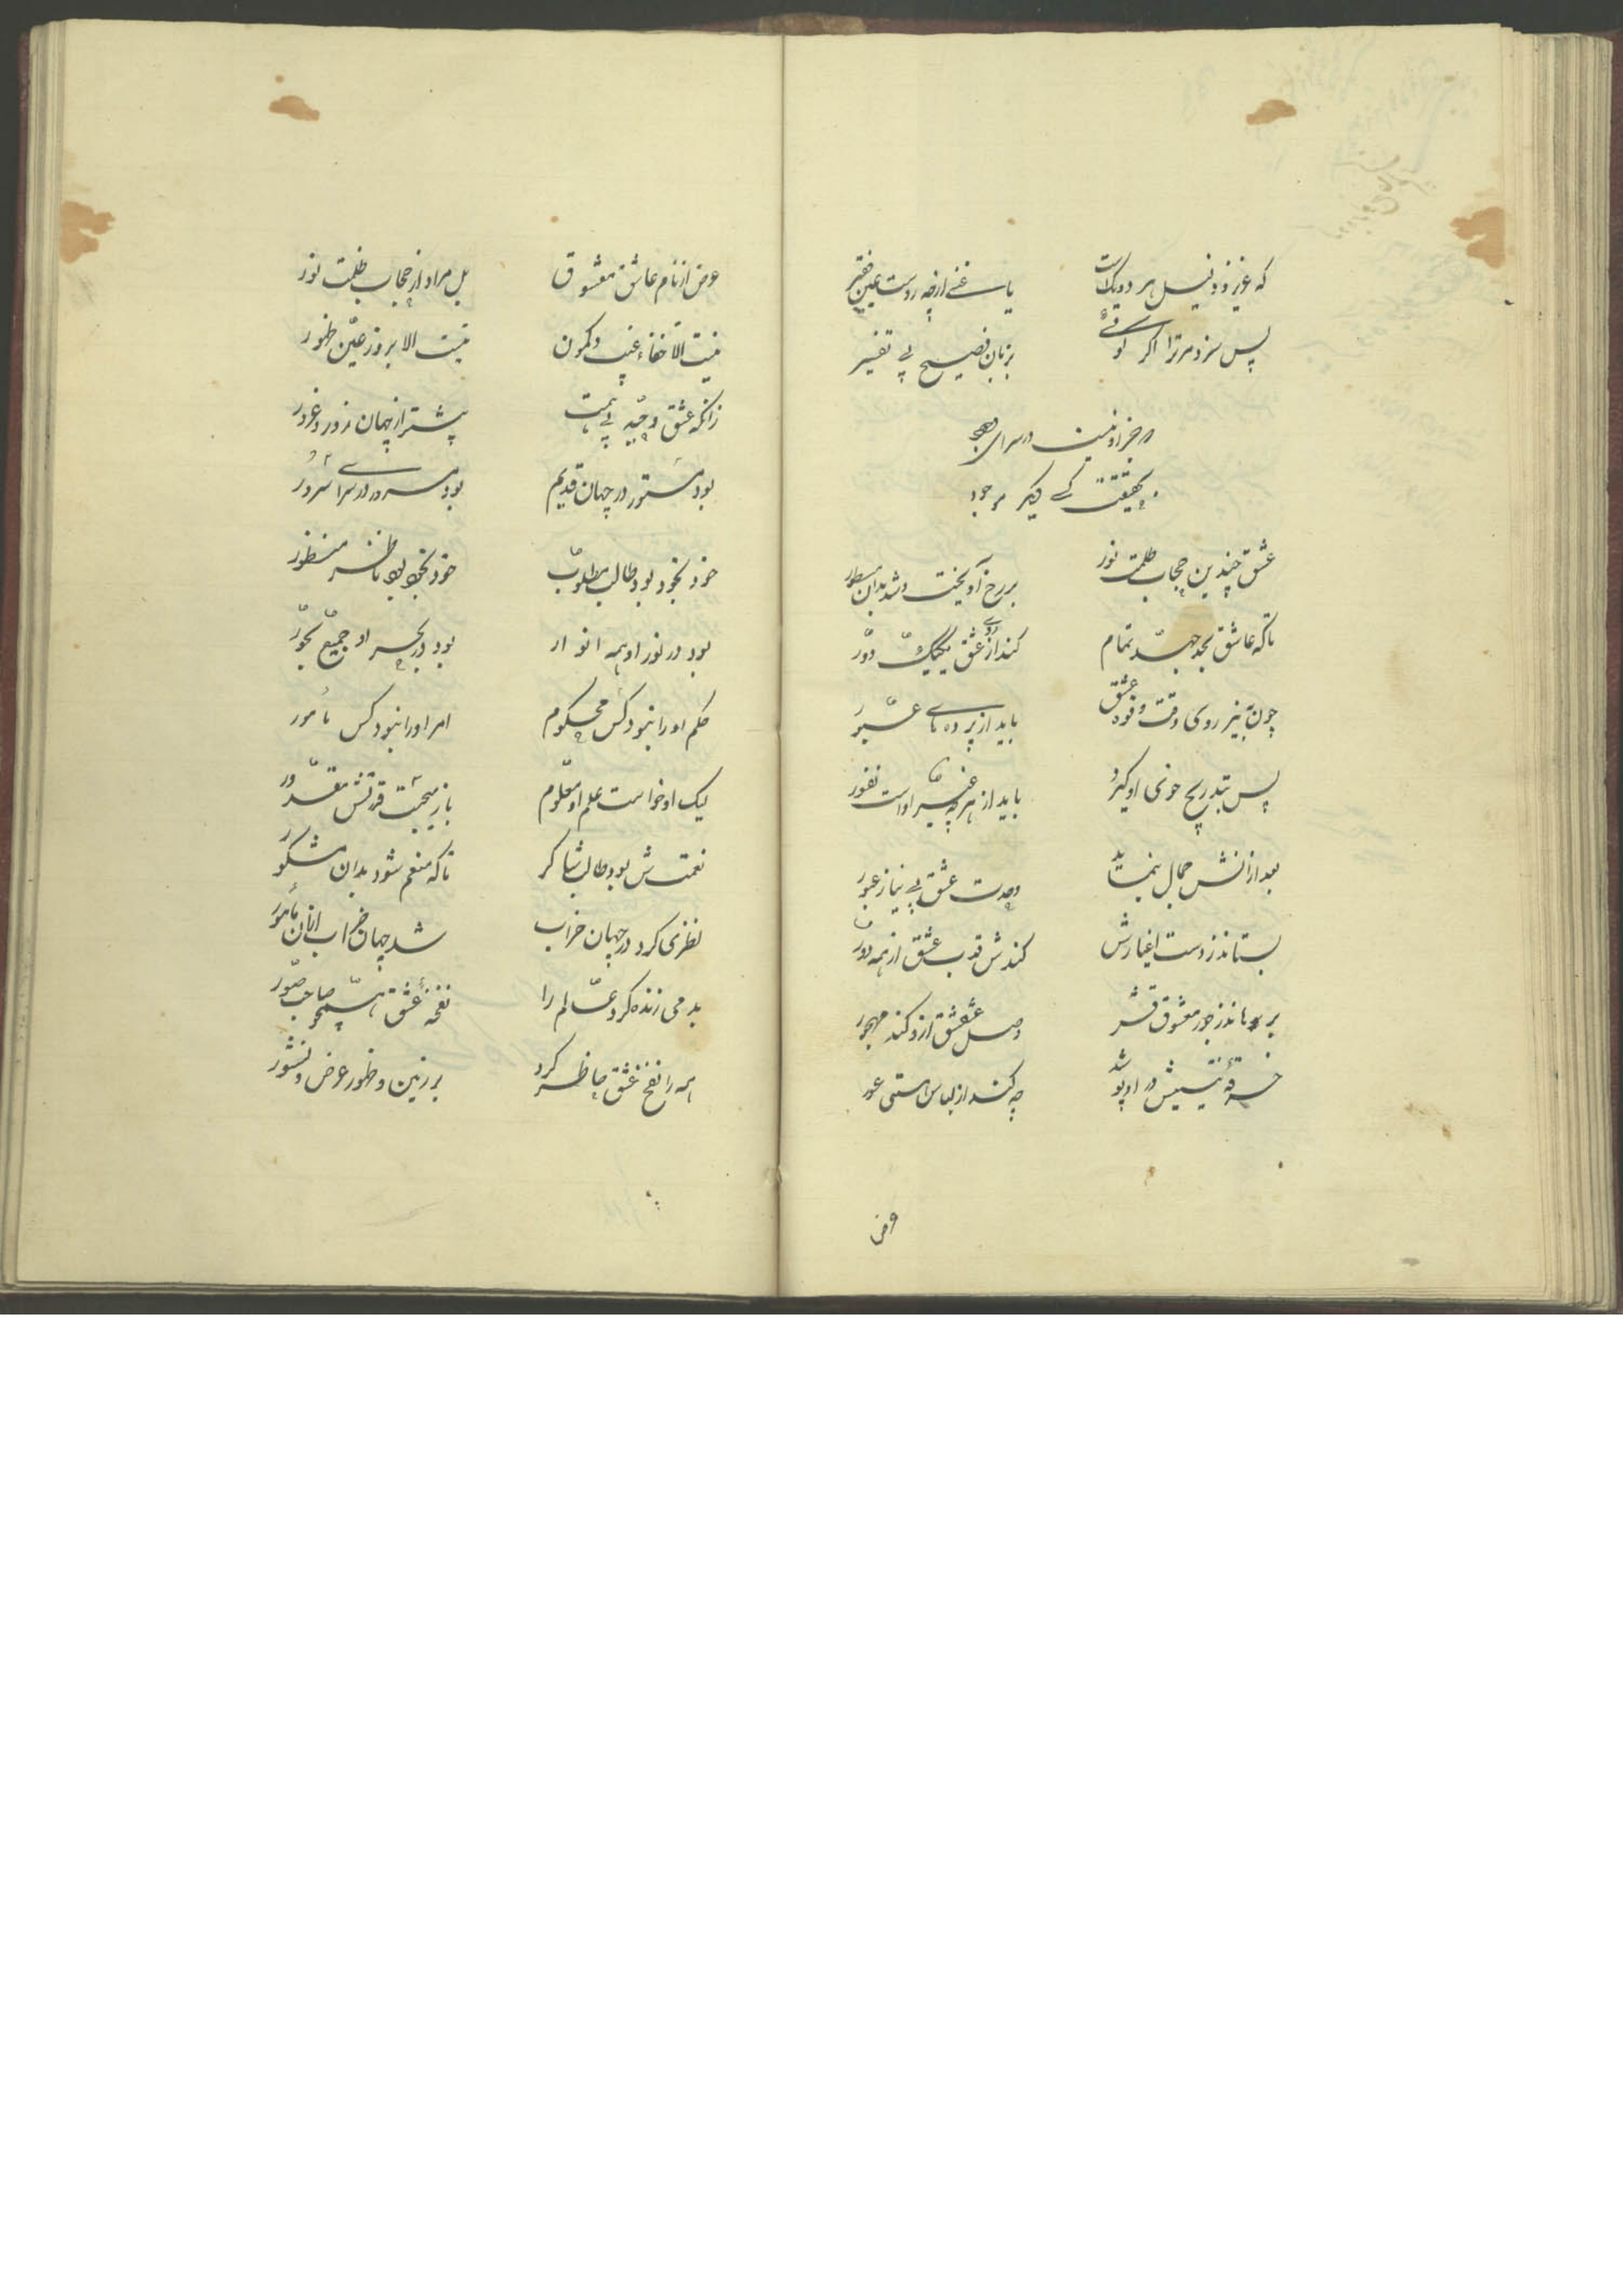 که عزیز و ذلیل هر دو یکی است یا غنی از چه روست عین فقیر
پس سزد مر ترا اگر گوئی بزبان فصیح بی تفسیر
جز او نیست در سرای وجود
بحقیقت کسی دیگر موجود
عشق چندین حجاب ظلمت نور بر رخ آویخت و شد بدان مستور
تاکه عاشق بجد و جهد تمام کند از روی عشق یکیک دور
چون به نیروی وقت و قوه عشق باید از پرده های عبور
پس بتدریج خوی او گیرد یابد از هرچه غیر او است نفور
بعد از آنش جمال بنماید وحدت عشق بی نیاز غیور
بستاند ز دست اغیارش کندش قرب عشق از همه دور
برهاند ز جور معشوقش وصل عشقش ازو کند مهجور
خرقه نیستیش در پوشد چه کند از لباس هستی عور
عرض
عرض از نام عاشق و معشوق بل مراد از حجاب ظلمت نور
نیست الا خفاء غیب و کمون نیست الا بروز عین ظهور
زانکه عشق وحید بی همت پیشتر از جهان زور و غرور
بود مستور در جهان قدیم بود مسرور در سرای سرور
خود بخود بود طالب و مطلوب خود بخود بود ناظر و منظور
بود در نور او همه انوار بود در بحر او جمیع بحور
حکم او را نبود کس محکوم امر او را نبود کس مأمور
لیک او خواست علم او معلوم باز میجست قدرتش مقدور
نعمتش بود طالب شاکر تا که منعم شود بدان مشکور
نظری کرد در جهان خراب شد جهان خراب از آن معمور
بدمی زنده کرد عالم را نفخهٔ عشق همچو صاحب صور
همه را نفخ عشق حاضر کرد بر زمین و ظهور عرض و نشور